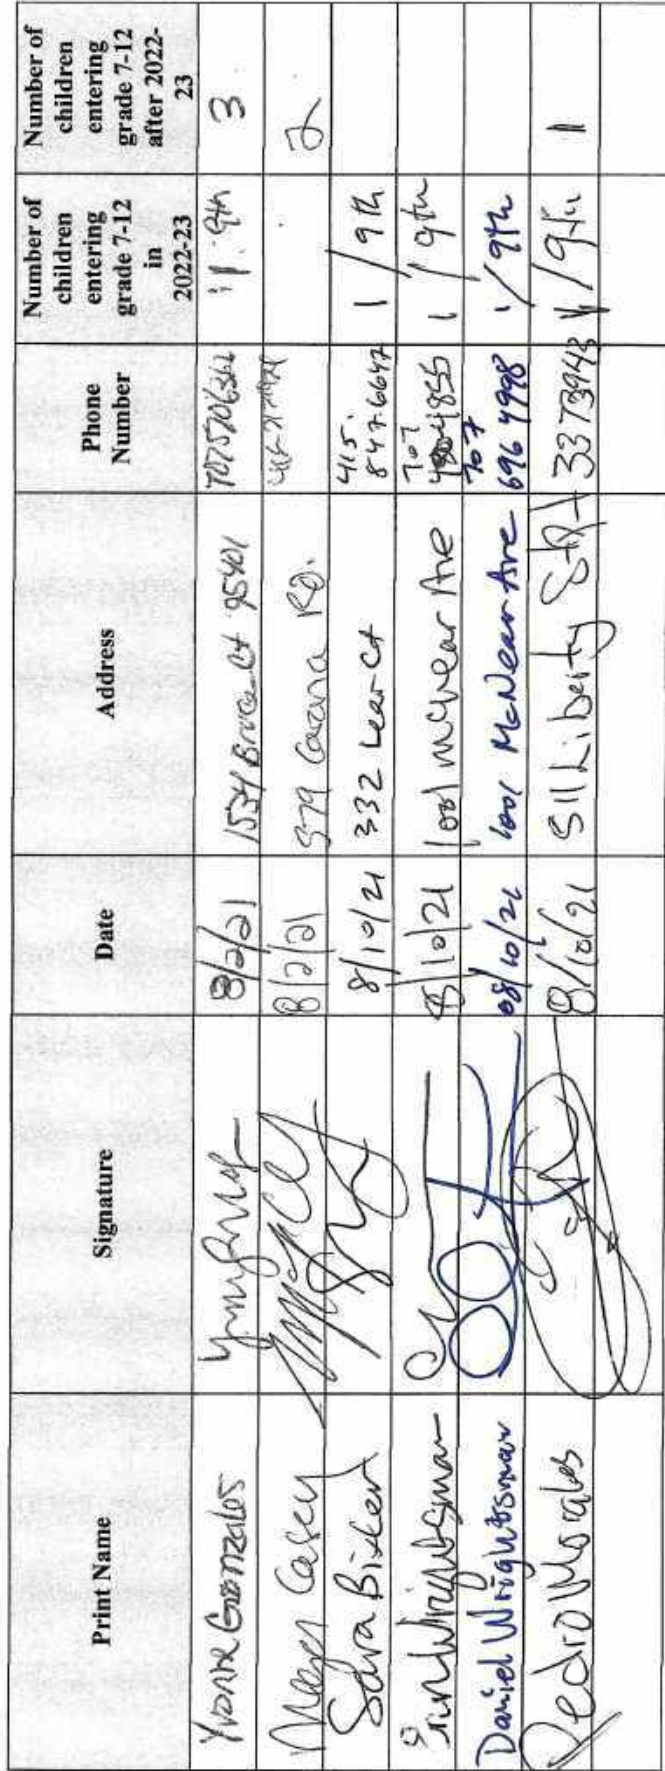 Print Name Signature Date Address Phone Number Number of children entering grade 7-12 in 2022-23 Number of children entering grade 7-12 after 2022-23
Yvonne Gonzales 8/2/21 1534 Ct 95401 7075706362 9th 3
Casey 8/2/21 Rd. 2
Sara Bixler 8/10/21 332 Lear Ct 415. 847.6647 1 / 9th
Erin Wrightsman 8/10/21 1001 McNear Ave 707 4855 1 / 9th
Daniel Wrightsman 08/10/21 1001 McNear Ave 707 696 4998 1/9th
Pedro Morales 8/10/21 511 Liberty St 3373943 1/9th 1